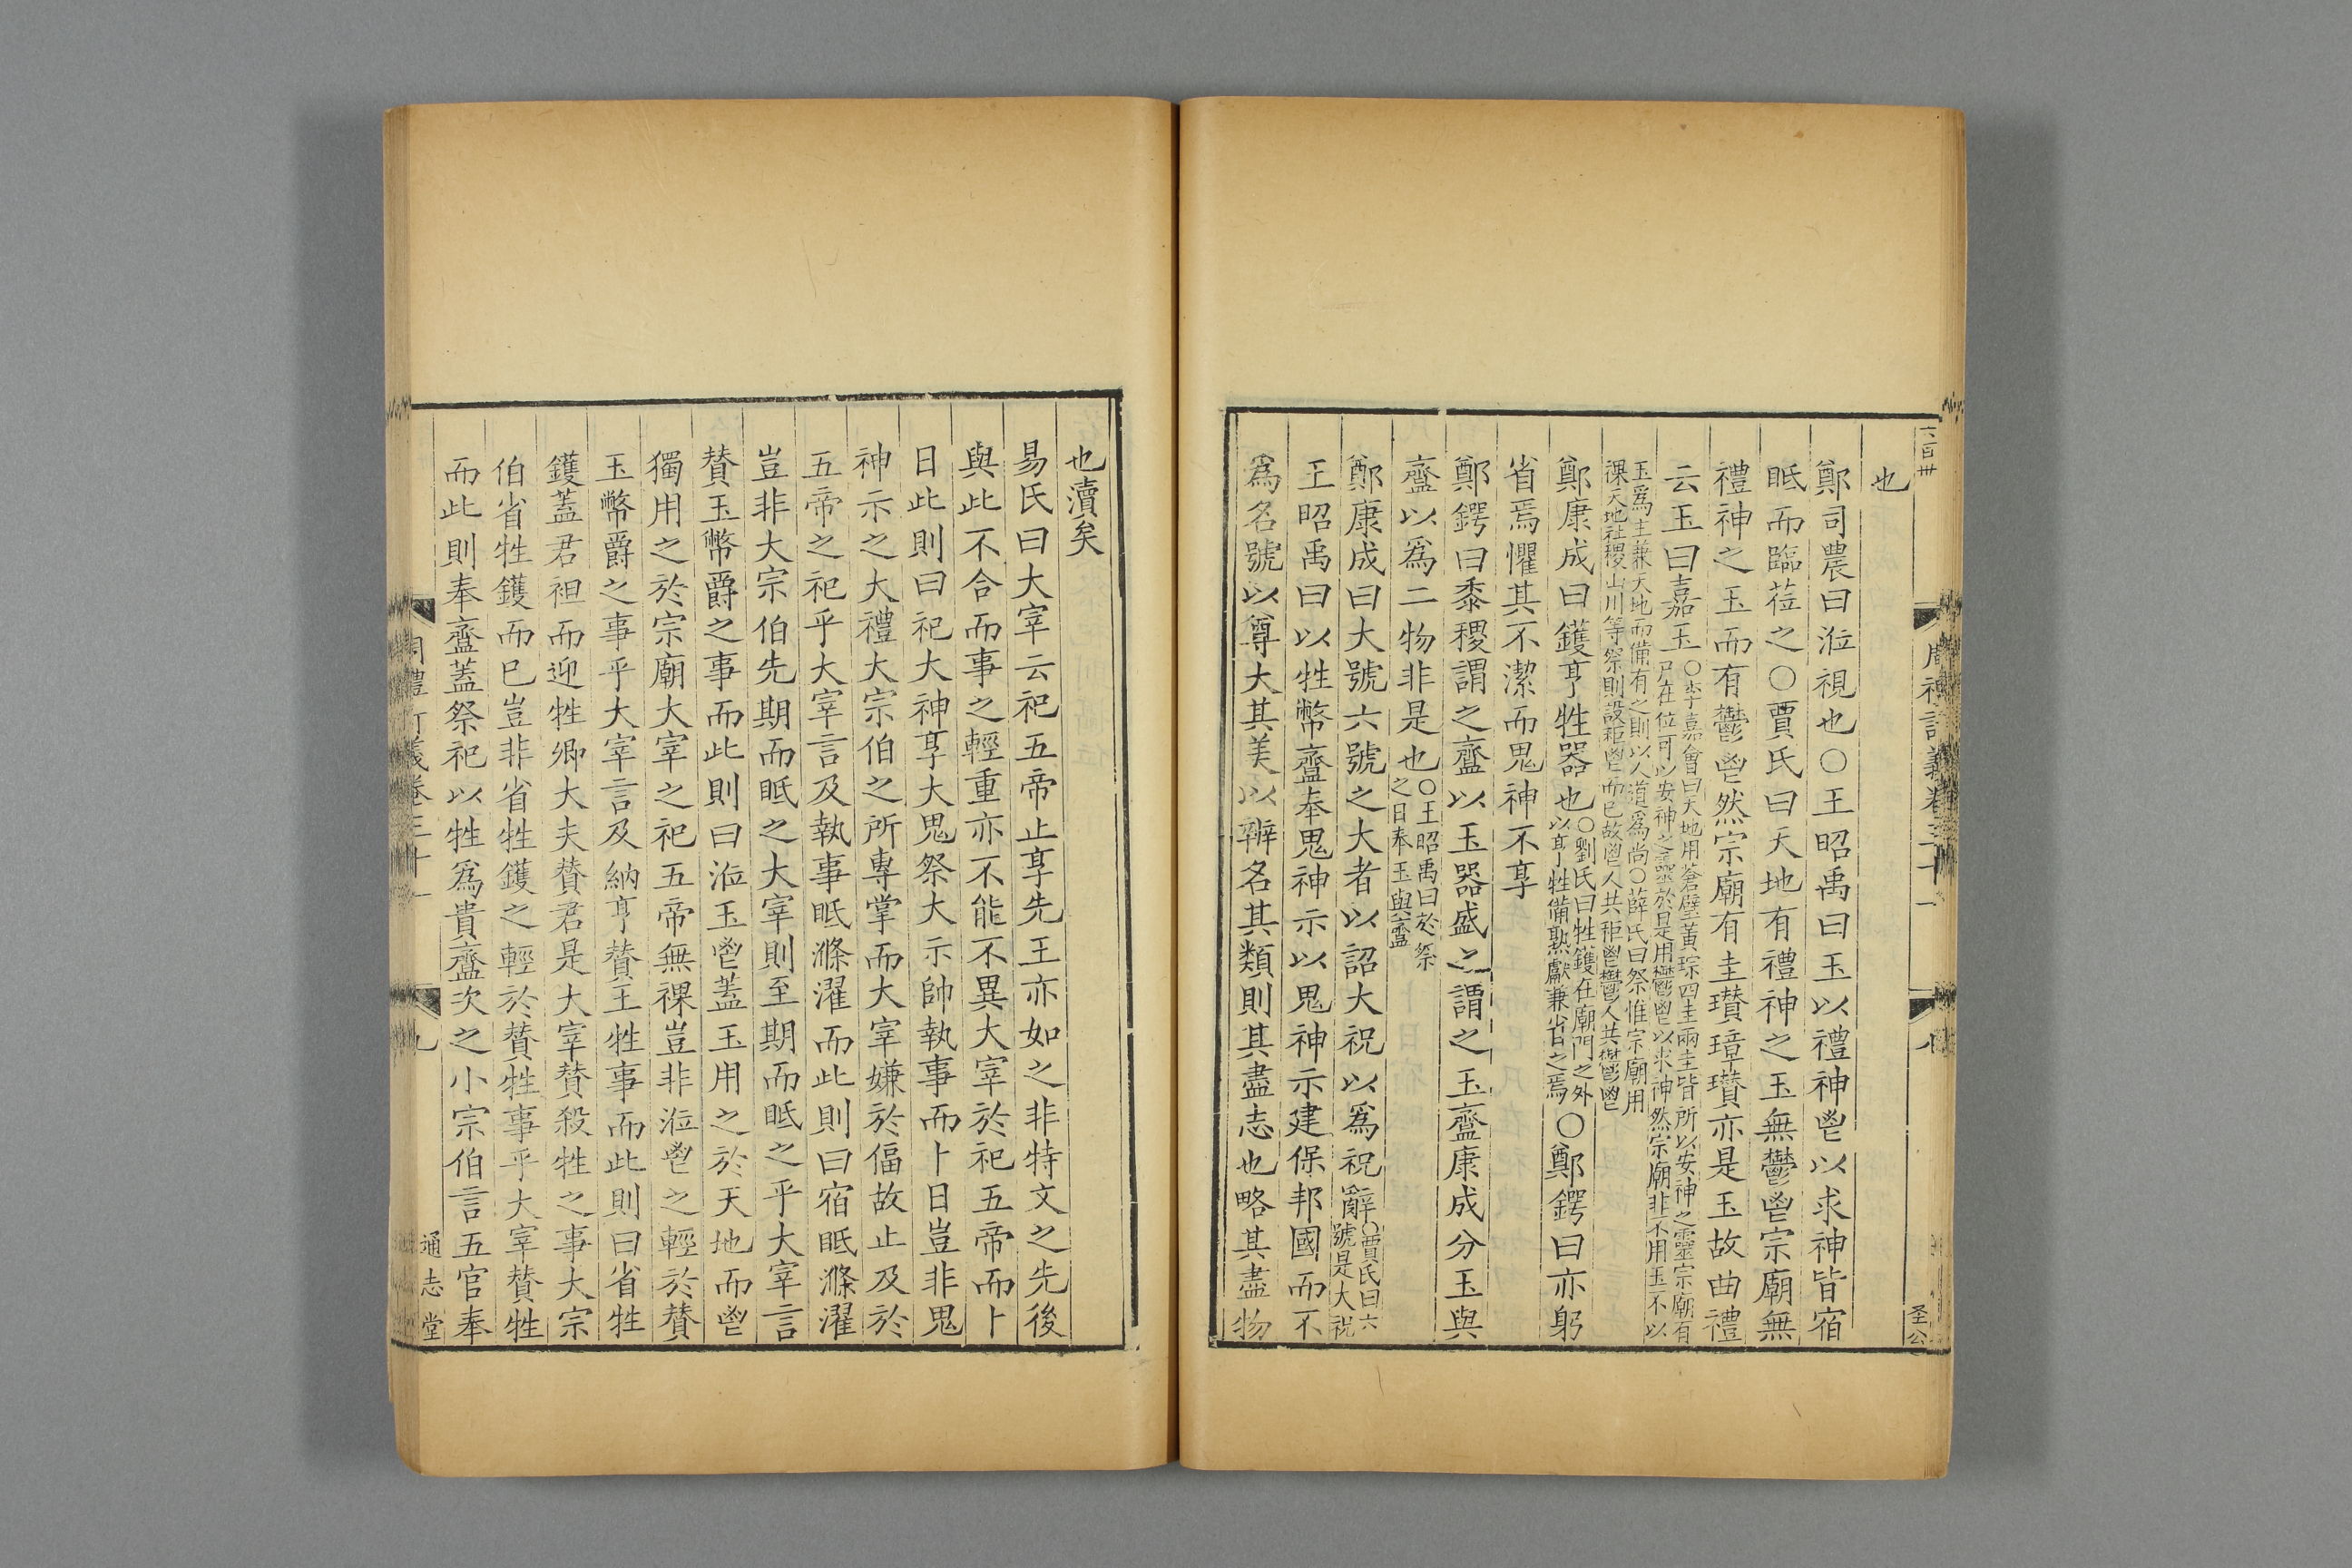 六百卅
周禮訂義卷三十一
圣公
也
鄭司農曰涖視也○王昭禹曰玉以禮神鬯以求神皆宿
眡而臨莅之○賈氏曰天地有禮神之玉無鬱鬯宗廟無
禮神之玉而有鬱鬯然宗廟有圭瓚璋瓚亦是玉故曲禮
云玉曰嘉玉○李嘉會曰天地用蒼璧黃琮四圭兩圭皆所以安神之靈宗廟有
尸在位可以安神之靈於是用鬱鬯以求神然宗廟非不用玉不以
玉爲主兼天地而備有之則以人道爲尚○薛氏曰祭惟宗廟用
祼天地社稷山川等祭則設秬鬯而已故鬯人共秬鬯鬱人共鬱鬯
鄭康成曰鑊亨牲器也○劉氏曰牲鑊在廟門之外以亨牲備熟獻兼省之焉○鄭鍔曰亦躬
省焉懼其不潔而鬼神不享
鄭鍔曰黍稷謂之齍以玉器盛之謂之玉齍康成分玉與
齍以爲二物非是也○王昭禹曰於祭之日奉玉與齍
鄭康成曰大號六號之大者以詔大祝以爲祝辭○賈氏曰六號是大祝
王昭禹曰以牲幣齍奉鬼神示以鬼神示建保邦國而不
爲名號以尊大其美以辨名其類則其盡志也略其盡物
也瀆矣
易氏曰大宰云祀五帝止享先王亦如之非特文之先後
與此不合而事之輕重亦不能不異大宰於祀五帝而卜
日此則曰祀大神享大鬼祭大示帥執事而卜日豈非鬼
神示之大禮大宗伯之所專掌而大宰嫌於偪故止及於
五帝之祀乎大宰言及執事眡滌濯而此則曰宿眡滌濯
豈非大宗伯先期而眡之大宰則至期而眡之乎大宰言
贊玉幣爵之事而此則曰涖玉鬯蓋玉用之於天地而鬯
獨用之於宗廟大宰之祀五帝無祼豈非涖鬯之輕於贊
玉幣爵之事乎大宰言及納亨贊王牲事而此則曰省牲
鑊蓋君袒而迎牲卿大夫贊君是大宰贊殺牲之事大宗
伯省牲鑊而已豈非省牲鑊之輕於贊牲事乎大宰贊牲
而此則奉齍蓋祭祀以牲爲貴齍次之小宗伯言五官奉
周禮訂義卷三十一
九
通志堂